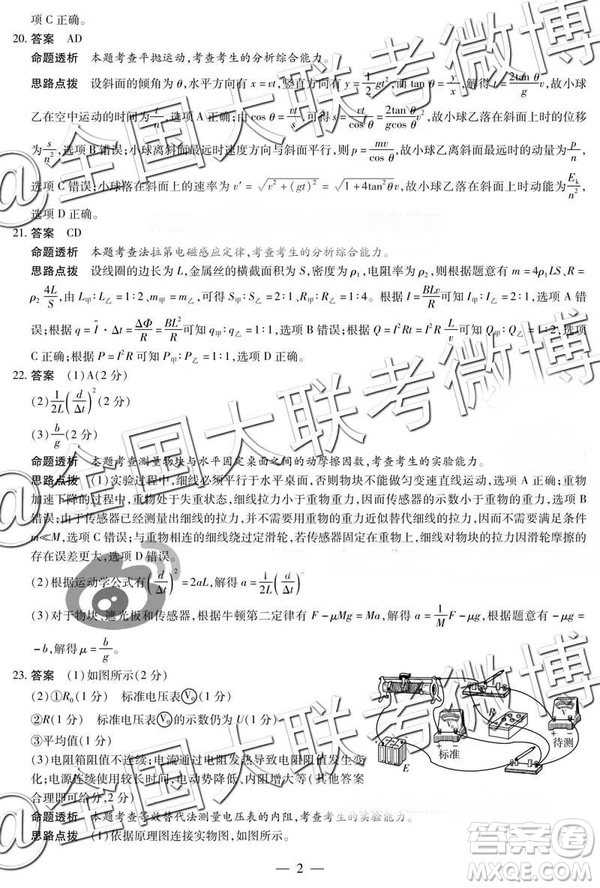 项 C 正确。
20. 答案 AD
命题透析 本题考查平抛运动,考查考生的分析综合能力。
思路点拨 设斜面的倾角为 θ,水平方向有 x = vt,竖直方向有 y = 1/2 gt², 而 tan θ = y/x, 解得 t = 2tan θ/g v,故小球
乙在空中运动的时间为 t/n, 选项 A 正确;由 cos θ = vt/s, 解得 s = vt/cos θ = 2tan θ/gcos θ v²,故小球乙落在斜面上时的位移
为 s/n², 选项 B 错误;小球离斜面最远时速度方向与斜面平行,则 p = mv/cos θ,故小球乙离斜面最远时的动量为 p/n,
选项 C 错误;小球落在斜面上的速率为 v′ = √(v² + (gt)²) = √(1 + 4tan²θ) v,故小球乙落在斜面上时的动能为 E_k/n²,
选项 D 正确。
21. 答案 CD
命题透析 本题考查法拉第电磁感应定律,考查考生的分析综合能力。
思路点拨 设线圈的边长为 L,金属丝的横截面积为 S,密度为 ρ₁,电阻率为 ρ₂,根据题意有 m = 4ρ₁LS,R =
ρ₂ 4L/S,由 L甲:L乙 = 1:2,可知 S甲:S乙 = 2:1、R甲:R乙 = 1:4。根据 I = BLv/R 可知 I甲:I乙 = 2:1,选项 A 错
误;根据 q = I·Δt = ΔΦ/R = BL²/R 可知 q甲:q乙 = 1:1,选项 B 错误;根据 Q = I²Rt = I²R L/v 可知 Q甲:Q乙 = 1:2,
选项 C 正确;根据 P = I²R 可知 P甲:P乙 = 1:1,选项 D 正确。
22. 答案 (1)A(2 分)
(2) 1/2L (d/Δt)² (2 分)
(3) b/g (2 分)
命题透析 本题考查测量物块与水平固定桌面之间的动摩擦因数,考查考生的实验能力。
思路点拨 (1)实验过程中,细线必须平行于水平桌面,否则物块不能做匀变速直线运动,选项 A 正确;重物
加速下降的过程中,重物处于失重状态,细线拉力小于重物重力,因此传感器的示数小于重物的重力,选项 B
错误;由于传感器已经测量出细线的拉力,因而不需要用重物的重力近似替代细线的拉力,不需要满足条件
m≪M,选项 C 错误;与重物相连的细线要绕过定滑轮,若传感器与重物相连,细线对物块的拉力因滑轮摩擦的
存在误差更大,选项 D 错误。
(2)根据运动学公式有 (d/Δt)² = 2aL,解得 a = 1/2L (d/Δt)²。
(3)对于物块、遮光板和传感器,根据牛顿第二定律有 F − μMg = Ma,解得 a = 1/M F − μg,根据题意有 −μg =
−b,解得 μ = b/g。
23. 答案 (1)如图所示(2 分)
(2)①R₀(1 分) 标准电压表V₀(1 分)
②R(1 分) 标准电压表V₀的示数仍为 U(1 分)
③平均值(1 分)
(3)电阻箱阻值不连续;电流通过电阻发热导致电阻阻值发生变
化;电源连续使用较长时间,电动势降低、内阻增大等(其他答案
合理即可给分,2 分)
命题透析 本题考查等效替代法测量电压表的内阻,考查考生的实验能力。
思路点拨 (1)依据原理图连接实物图,如图所示。
R
标准
待测
E
— 2 —
@全国大联考微博
@全国大联考微博
@全国大联考微博
答案圈
MXQE.COM